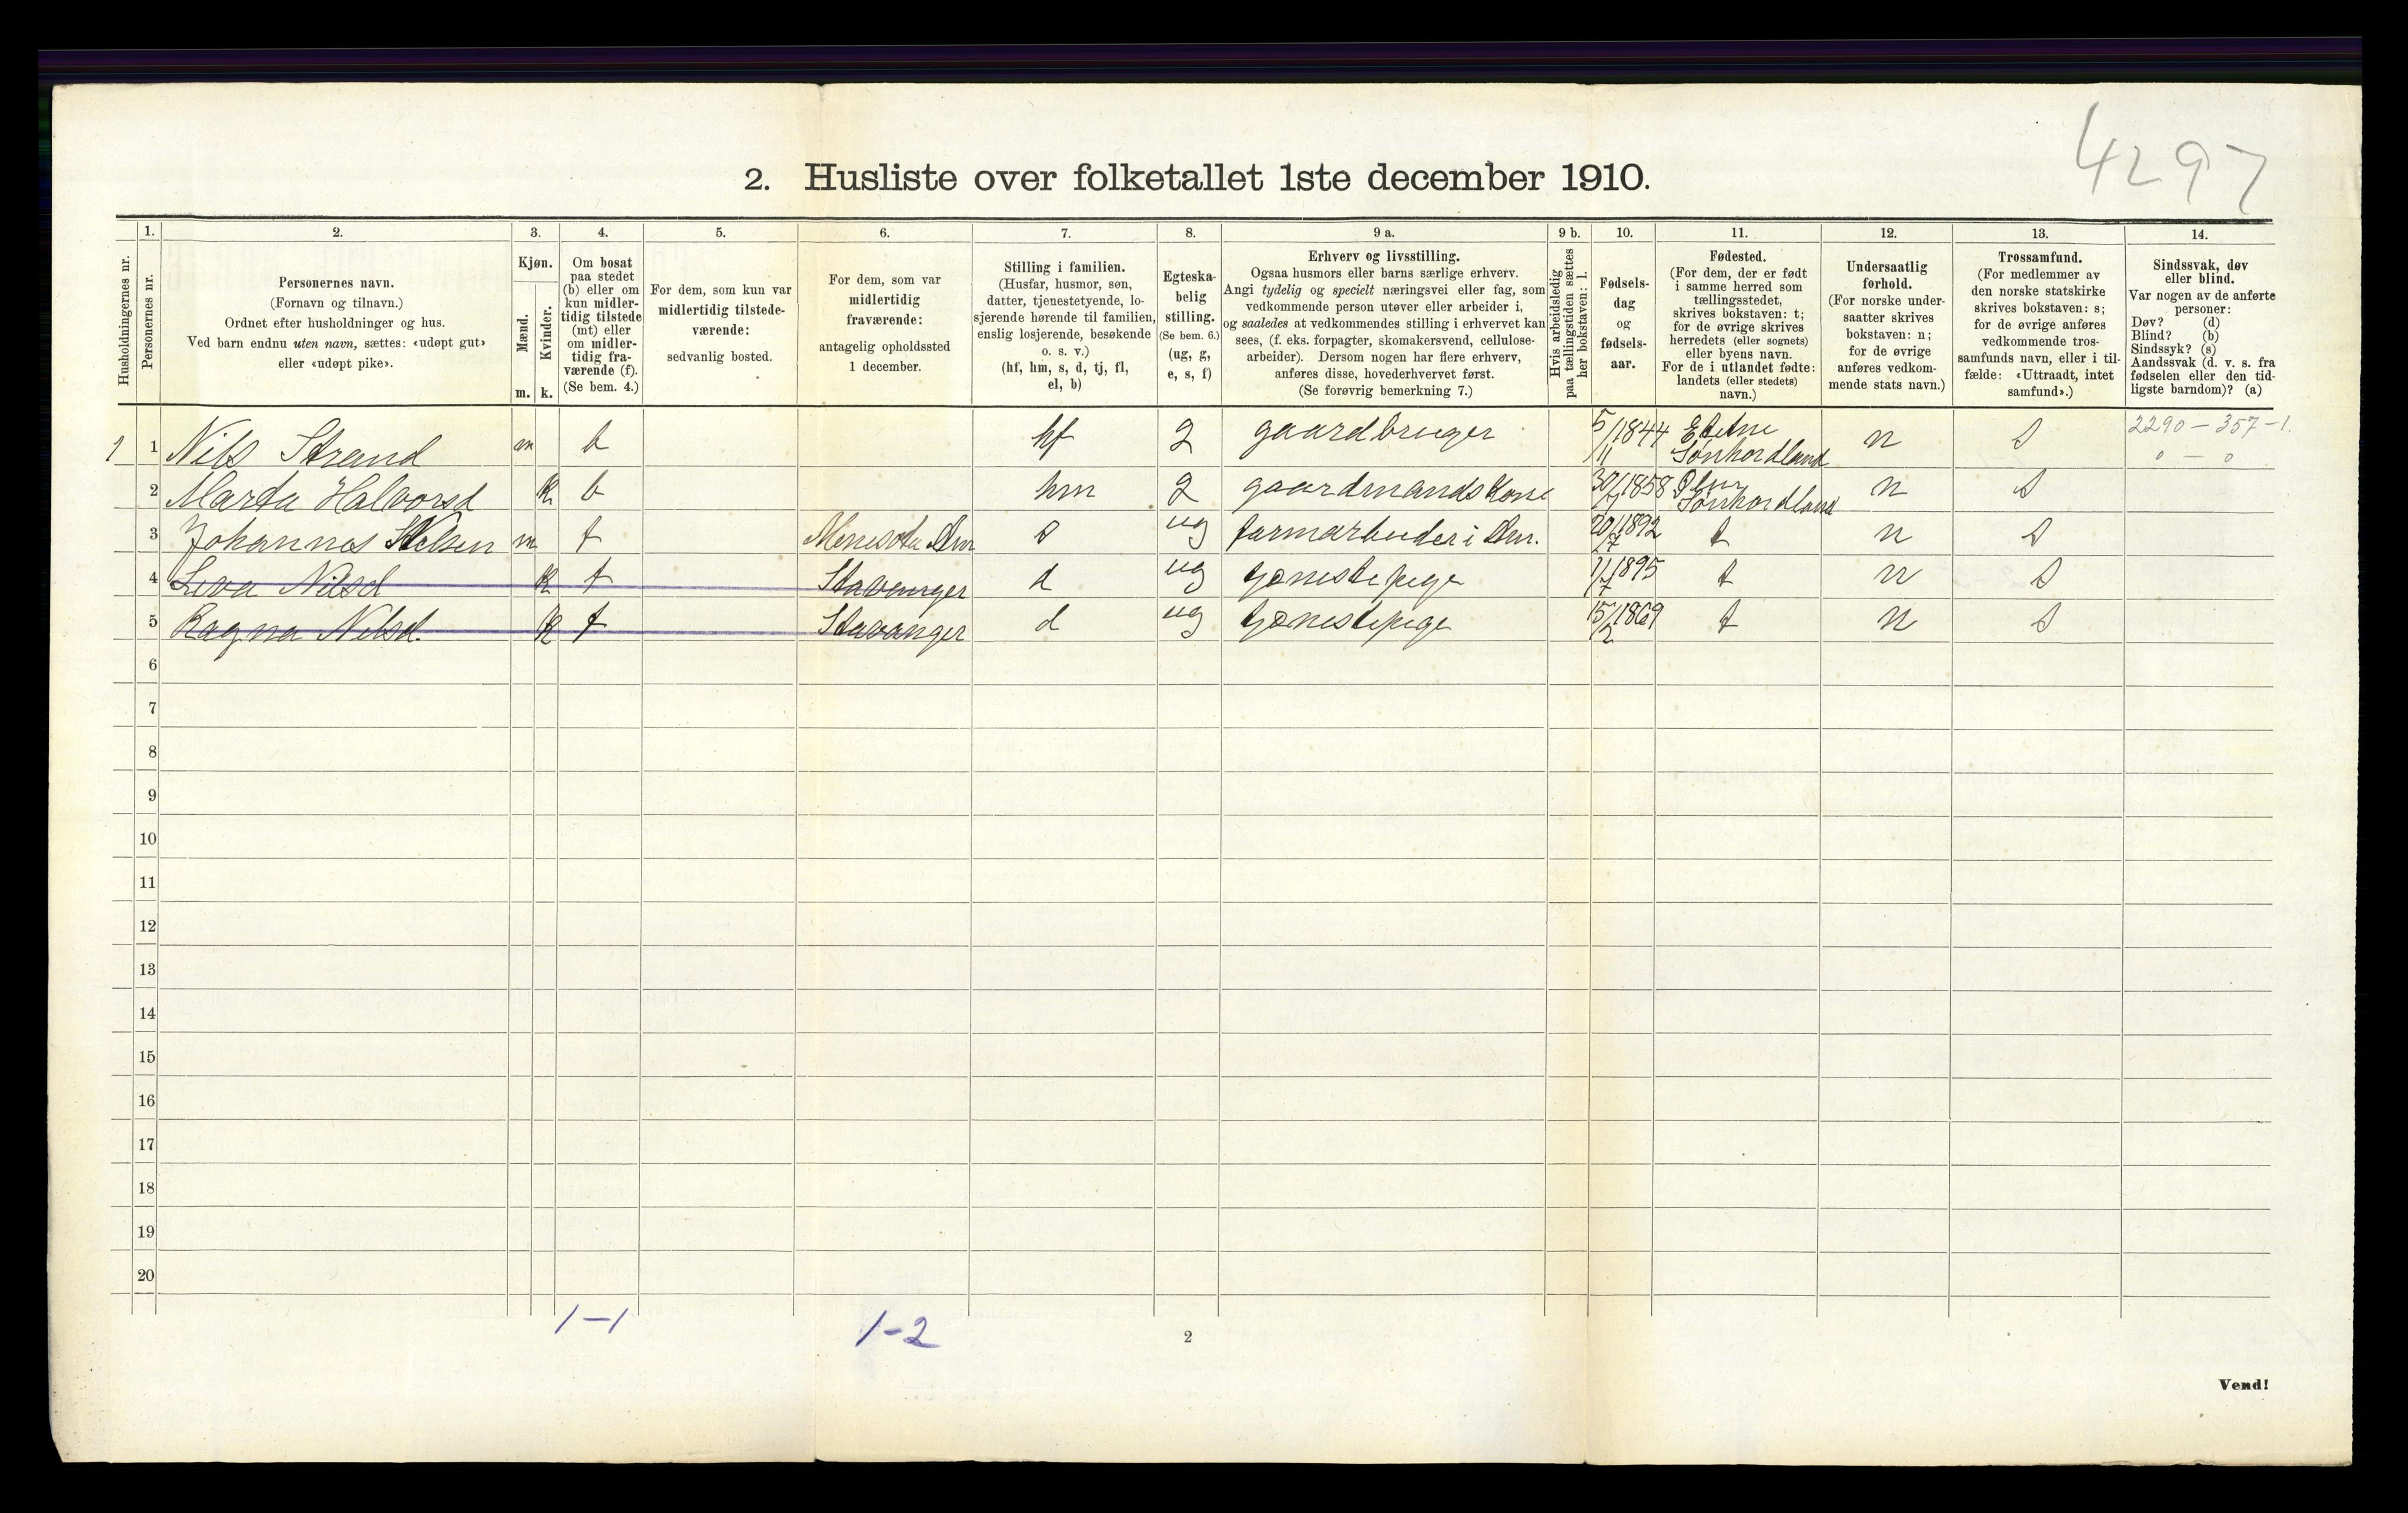 4297
2. Husliste over folketallet 1ste december 1910.
Husholdningernes nr.
1.
Personernes nr.
2.
Personernes navn.
(Fornavn og tilnavn.)
Ordnet efter husholdninger og hus.
Ved barn endnu uten navn, sættes: «udøpt gut»
eller «udøpt pike».
3.
Kjøn.
Mænd.
Kvinder.
m. k.
4.
Om bosat
paa stedet
(b) eller om
kun midler-
tidig tilstede
(mt) eller
om midler-
tidig fra-
værende (f).
(Se bem. 4.)
5.
For dem, som kun var
midlertidig tilstede-
værende:
sedvanlig bosted.
6.
For dem, som var
midlertidig
fraværende:
antagelig opholdssted
1 december.
7.
Stilling i familien.
(Husfar, husmor, søn,
datter, tjenestetyende, lo-
sjerende hørende til familien,
enslig losjerende, besøkende
o. s. v.)
(hf, hm, s, d, tj, fl,
el, b)
8.
Egteska-
belig
stilling.
(Se bem. 6.)
(ug, g,
e, s, f)
9 a.
Erhverv og livsstilling.
Ogsaa husmors eller barns særlige erhverv.
Angi tydelig og specielt næringsvei eller fag, som
vedkommende person utøver eller arbeider i,
og saaledes at vedkommendes stilling i erhvervet kan
sees, (f. eks. forpagter, skomakersvend, cellulose-
arbeider). Dersom nogen har flere erhverv,
anføres disse, hovederhvervet først.
(Se forøvrig bemerkning 7.)
9 b.
Hvis arbeidsledig
paa tællingstiden sættes
her bokstaven: l.
10.
Fødsels-
dag
og
fødsels-
aar.
11.
Fødested.
(For dem, der er født
i samme herred som
tællingsstedet,
skrives bokstaven: t;
for de øvrige skrives
herredets (eller sognets)
eller byens navn.
For de i utlandet fødte:
landets (eller stedets)
navn.)
12.
Undersaatlig
forhold.
(For norske under-
saatter skrives
bokstaven: n;
for de øvrige
anføres vedkom-
mende stats navn.)
13.
Trossamfund.
(For medlemmer av
den norske statskirke
skrives bokstaven: s;
for de øvrige anføres
vedkommende tros-
samfunds navn, eller i til-
fælde: «Uttraadt, intet
samfund».)
14.
Sindssvak, døv
eller blind.
Var nogen av de anførte
personer:
Døv? (d)
Blind? (b)
Sindssyk? (s)
Aandssvak (d. v. s. fra
fødselen eller den tid-
ligste barndom)? (a)
1 1 Nils Strand m b hf g gaardbruger 5/11 1844 Etne Sønhordland n s 2290 – 357 – 1.
0 – 0
2 Marta Halvorsd k b hm g gaardmandskone 30/7 1858 Ølen Sønhordland n s
3 Johannes Nilsen m f Menesota Am s ug farmarbeider i Am. 20/7 1892 t n s
4 Nilsd k f Stavanger d ug tjænestepige 11/7 1895 t n s
5 Ragna Nilsd. k f Stavanger d ug tjænestepige 15/2 t n s
6
7
8
9
10
11
12
13
14
15
16
17
18
19
20
1–1 1–2
2
Vend!